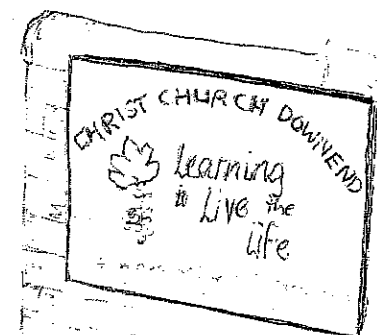 CHRIST CHURCH DOWNEND
Learning
to Live the
Life